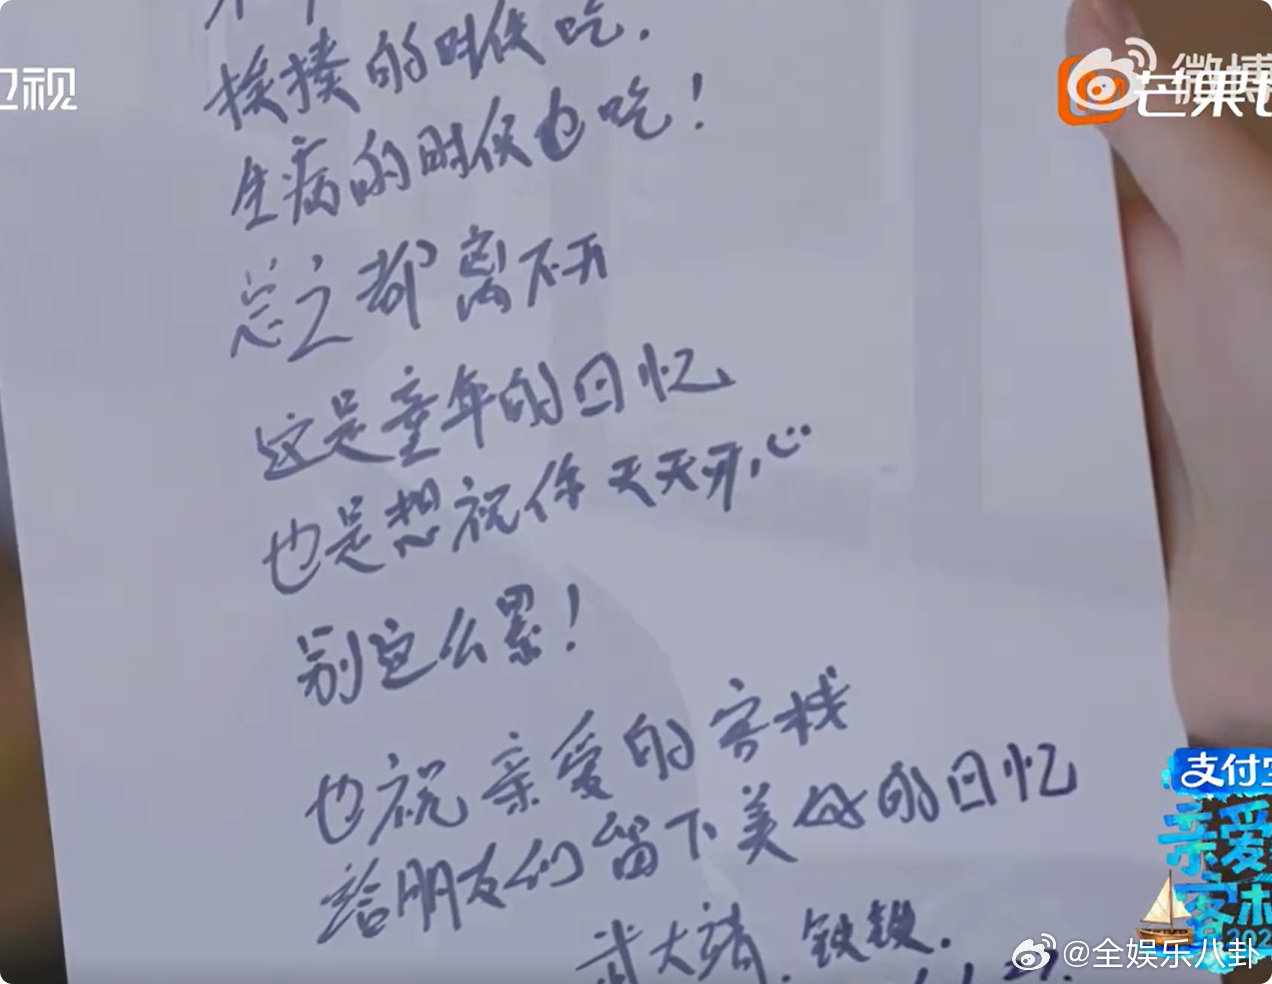 卫视
微博
芒果
挨揍的时候吃.
生病的时候也吃!
总之都离不开
这是童年的回忆
也是想祝你天天开心
别这么累!
也祝亲爱的客栈
给朋友们留下美好的回忆
武大靖. 铁铁.
支付宝
亲爱
客栈
202
@全娱乐八卦